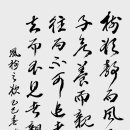 樹欲靜而風
子欲養而親
往而不可追者
去而不見者親
風樹之歎